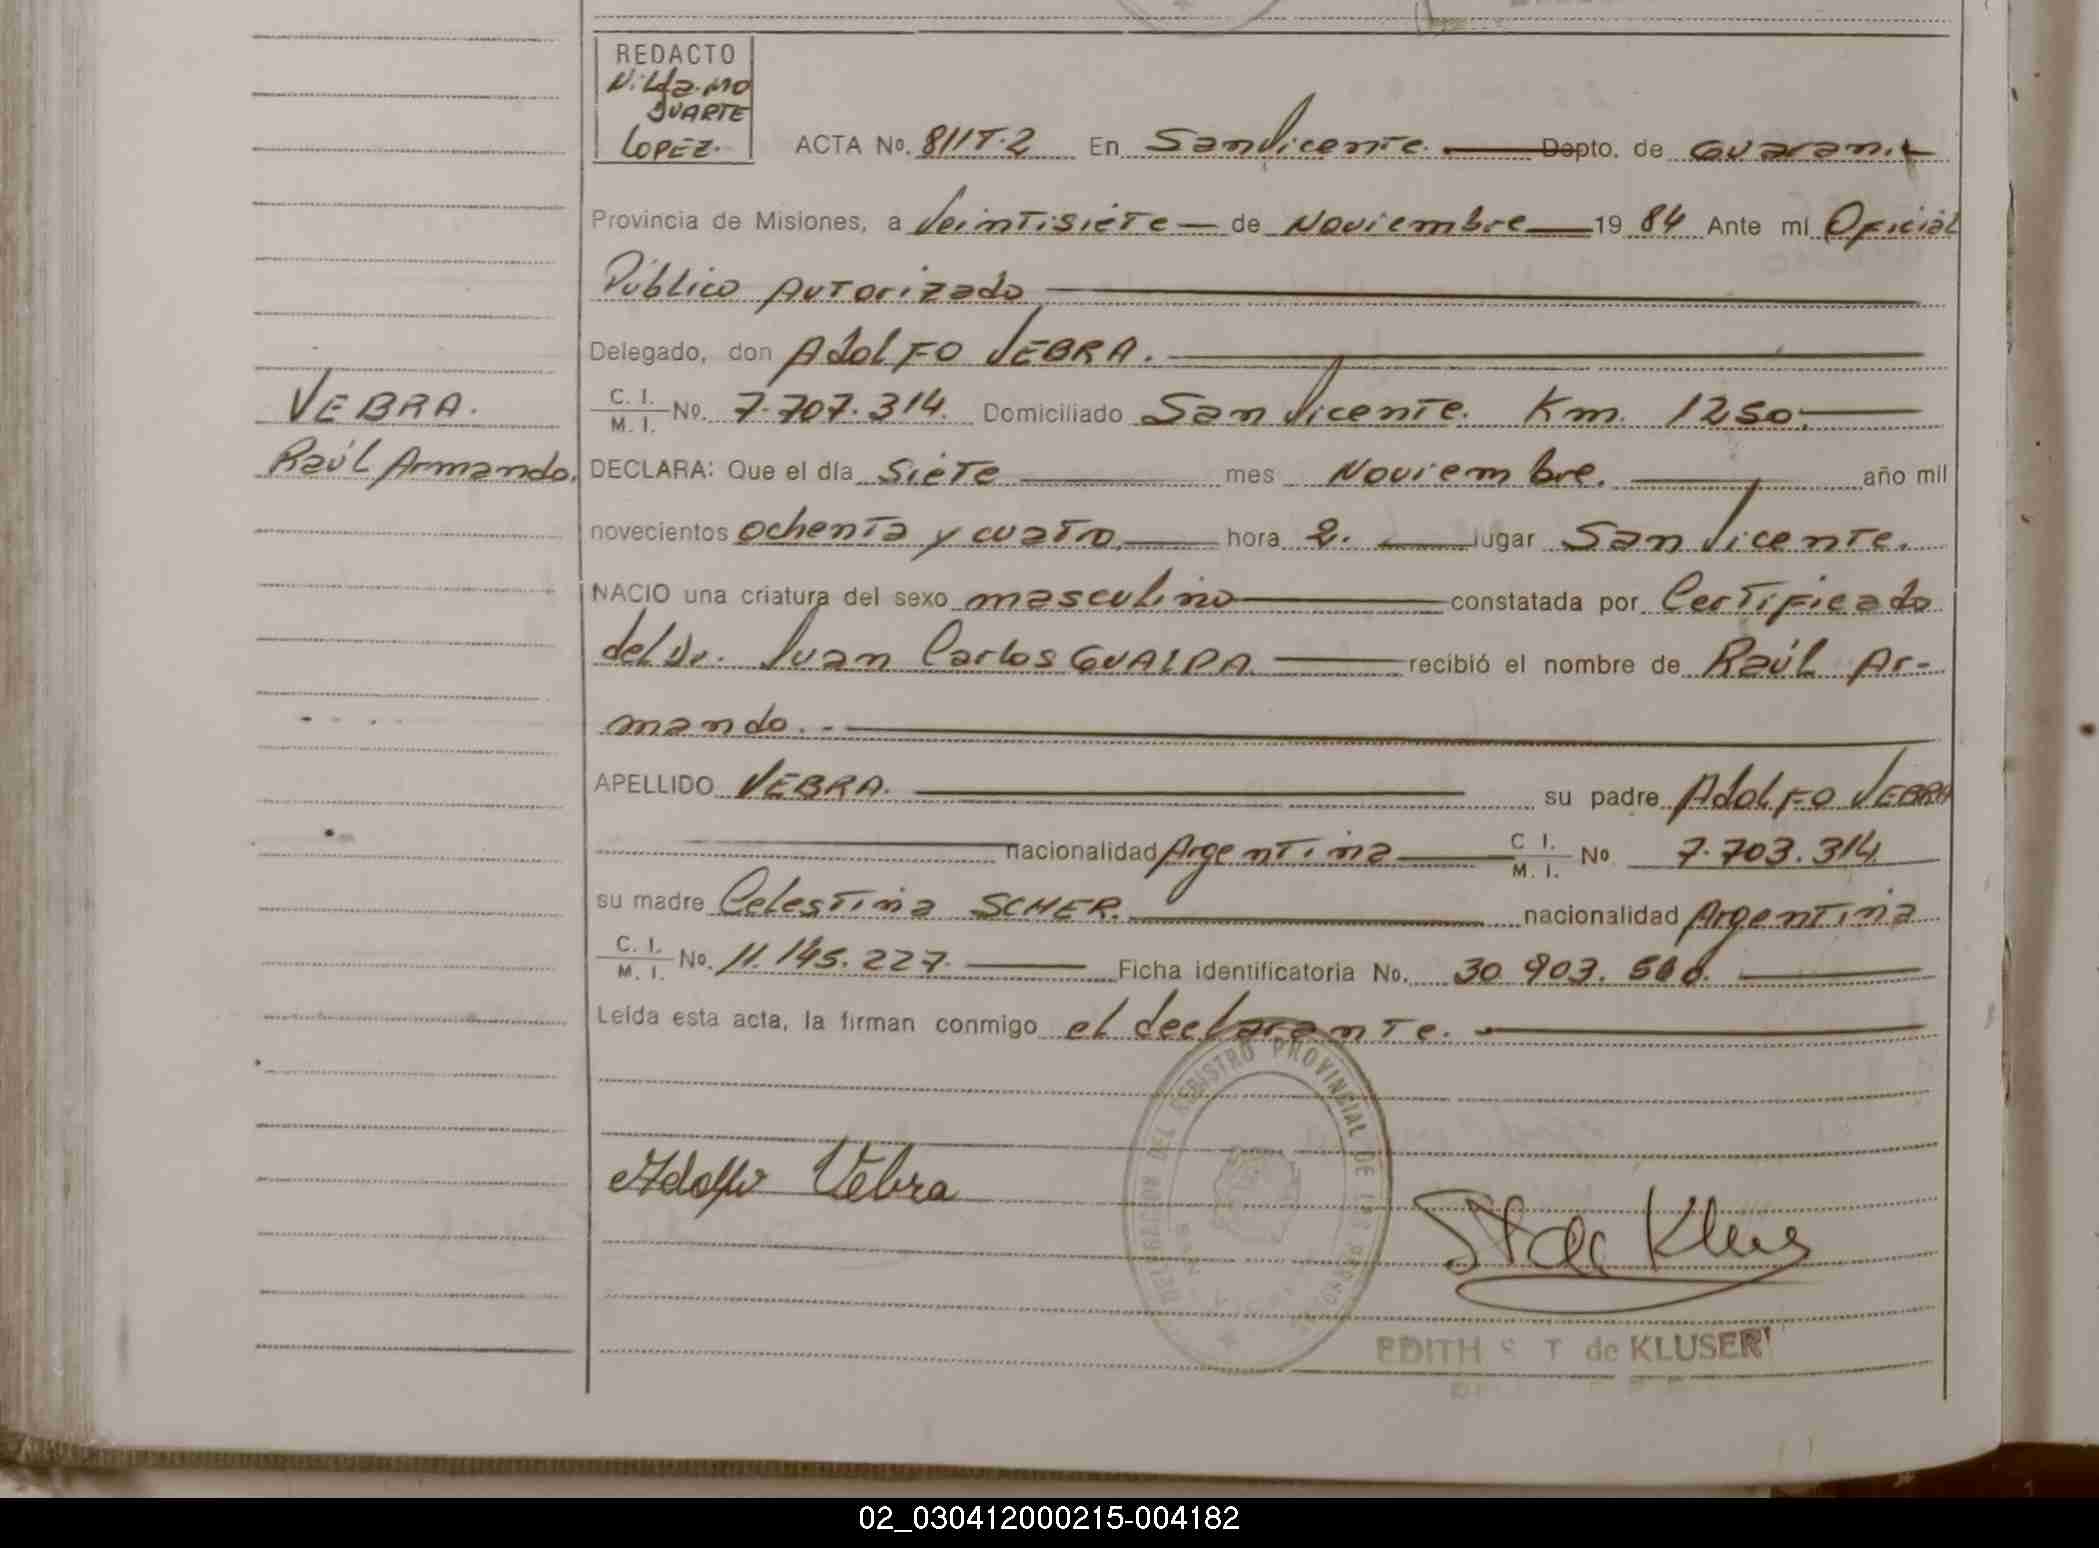 REDACTO
DUARTE
LOPEZ.
ACTA No. 811T.2 En San Vicente. Dapto. de Guaraní
Provincia de Misiones, a Veintisiete de Noviembre 19 84 Ante mí Oficial
Público Autorizado
Delegado, don Adolfo VEBRA.
C. I.
M. I. No. 7.707.314 Domiciliado San Vicente. Km. 1250.
VEBRA.
Raúl Armando.
DECLARA: Que el día Siete mes Noviembre. año mil
novecientos ochenta y cuatro hora 2. lugar San Vicente.
NACIO una criatura del sexo masculino constatada por Certificado
del Dr. Juan Carlos GUALDA recibió el nombre de Raúl Ar-
mando.-
APELLIDO VEBRA. su padre Adolfo VEBRA
nacionalidad Argentina C I.
M. I. No 7.703.314
su madre Celestina SCHER. nacionalidad Argentina
C. I.
M. I. No. 11.145.227. Ficha identificatoria No. 30 903.
Leída esta acta, la firman conmigo el declarante.
REGISTRO PROVINCIAL DE LAS PERSONAS
Adolfo Vebra
EDITH S. T. de KLUSER
02_030412000215-004182